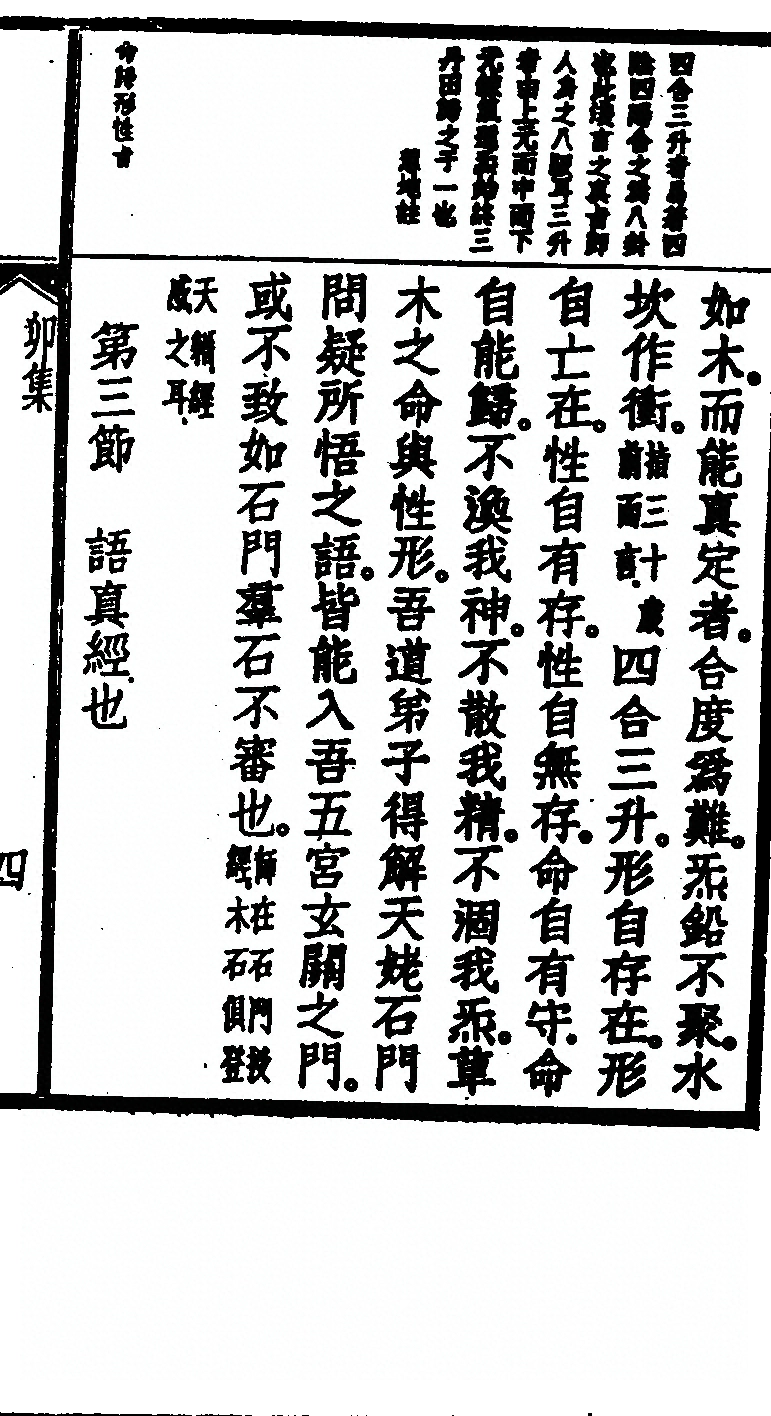 四合三升者易者四
陰四陽合之為八卦
也此 言之真
人身之八 耳三升
者由上元而中而下
元 三
丹田歸之于一也
註
歸形性
如木。而能真定者。合度爲難。炁鉛不聚。水
坎作衝。指三十歲前面言。四合三升。形自存在。形
自亡在。性自有存。性自無存。命自有守。命
自能歸。不渙我神。不散我精。不涸我炁。草
木之命與性形。吾道弟子得解天姥石門
問疑所悟之語。皆能入吾五宮玄關之門。
或不致如石門羣石不審也。師在石門授經木石俱登
天賴經感之耳
第三節 語真經也
卯集
四